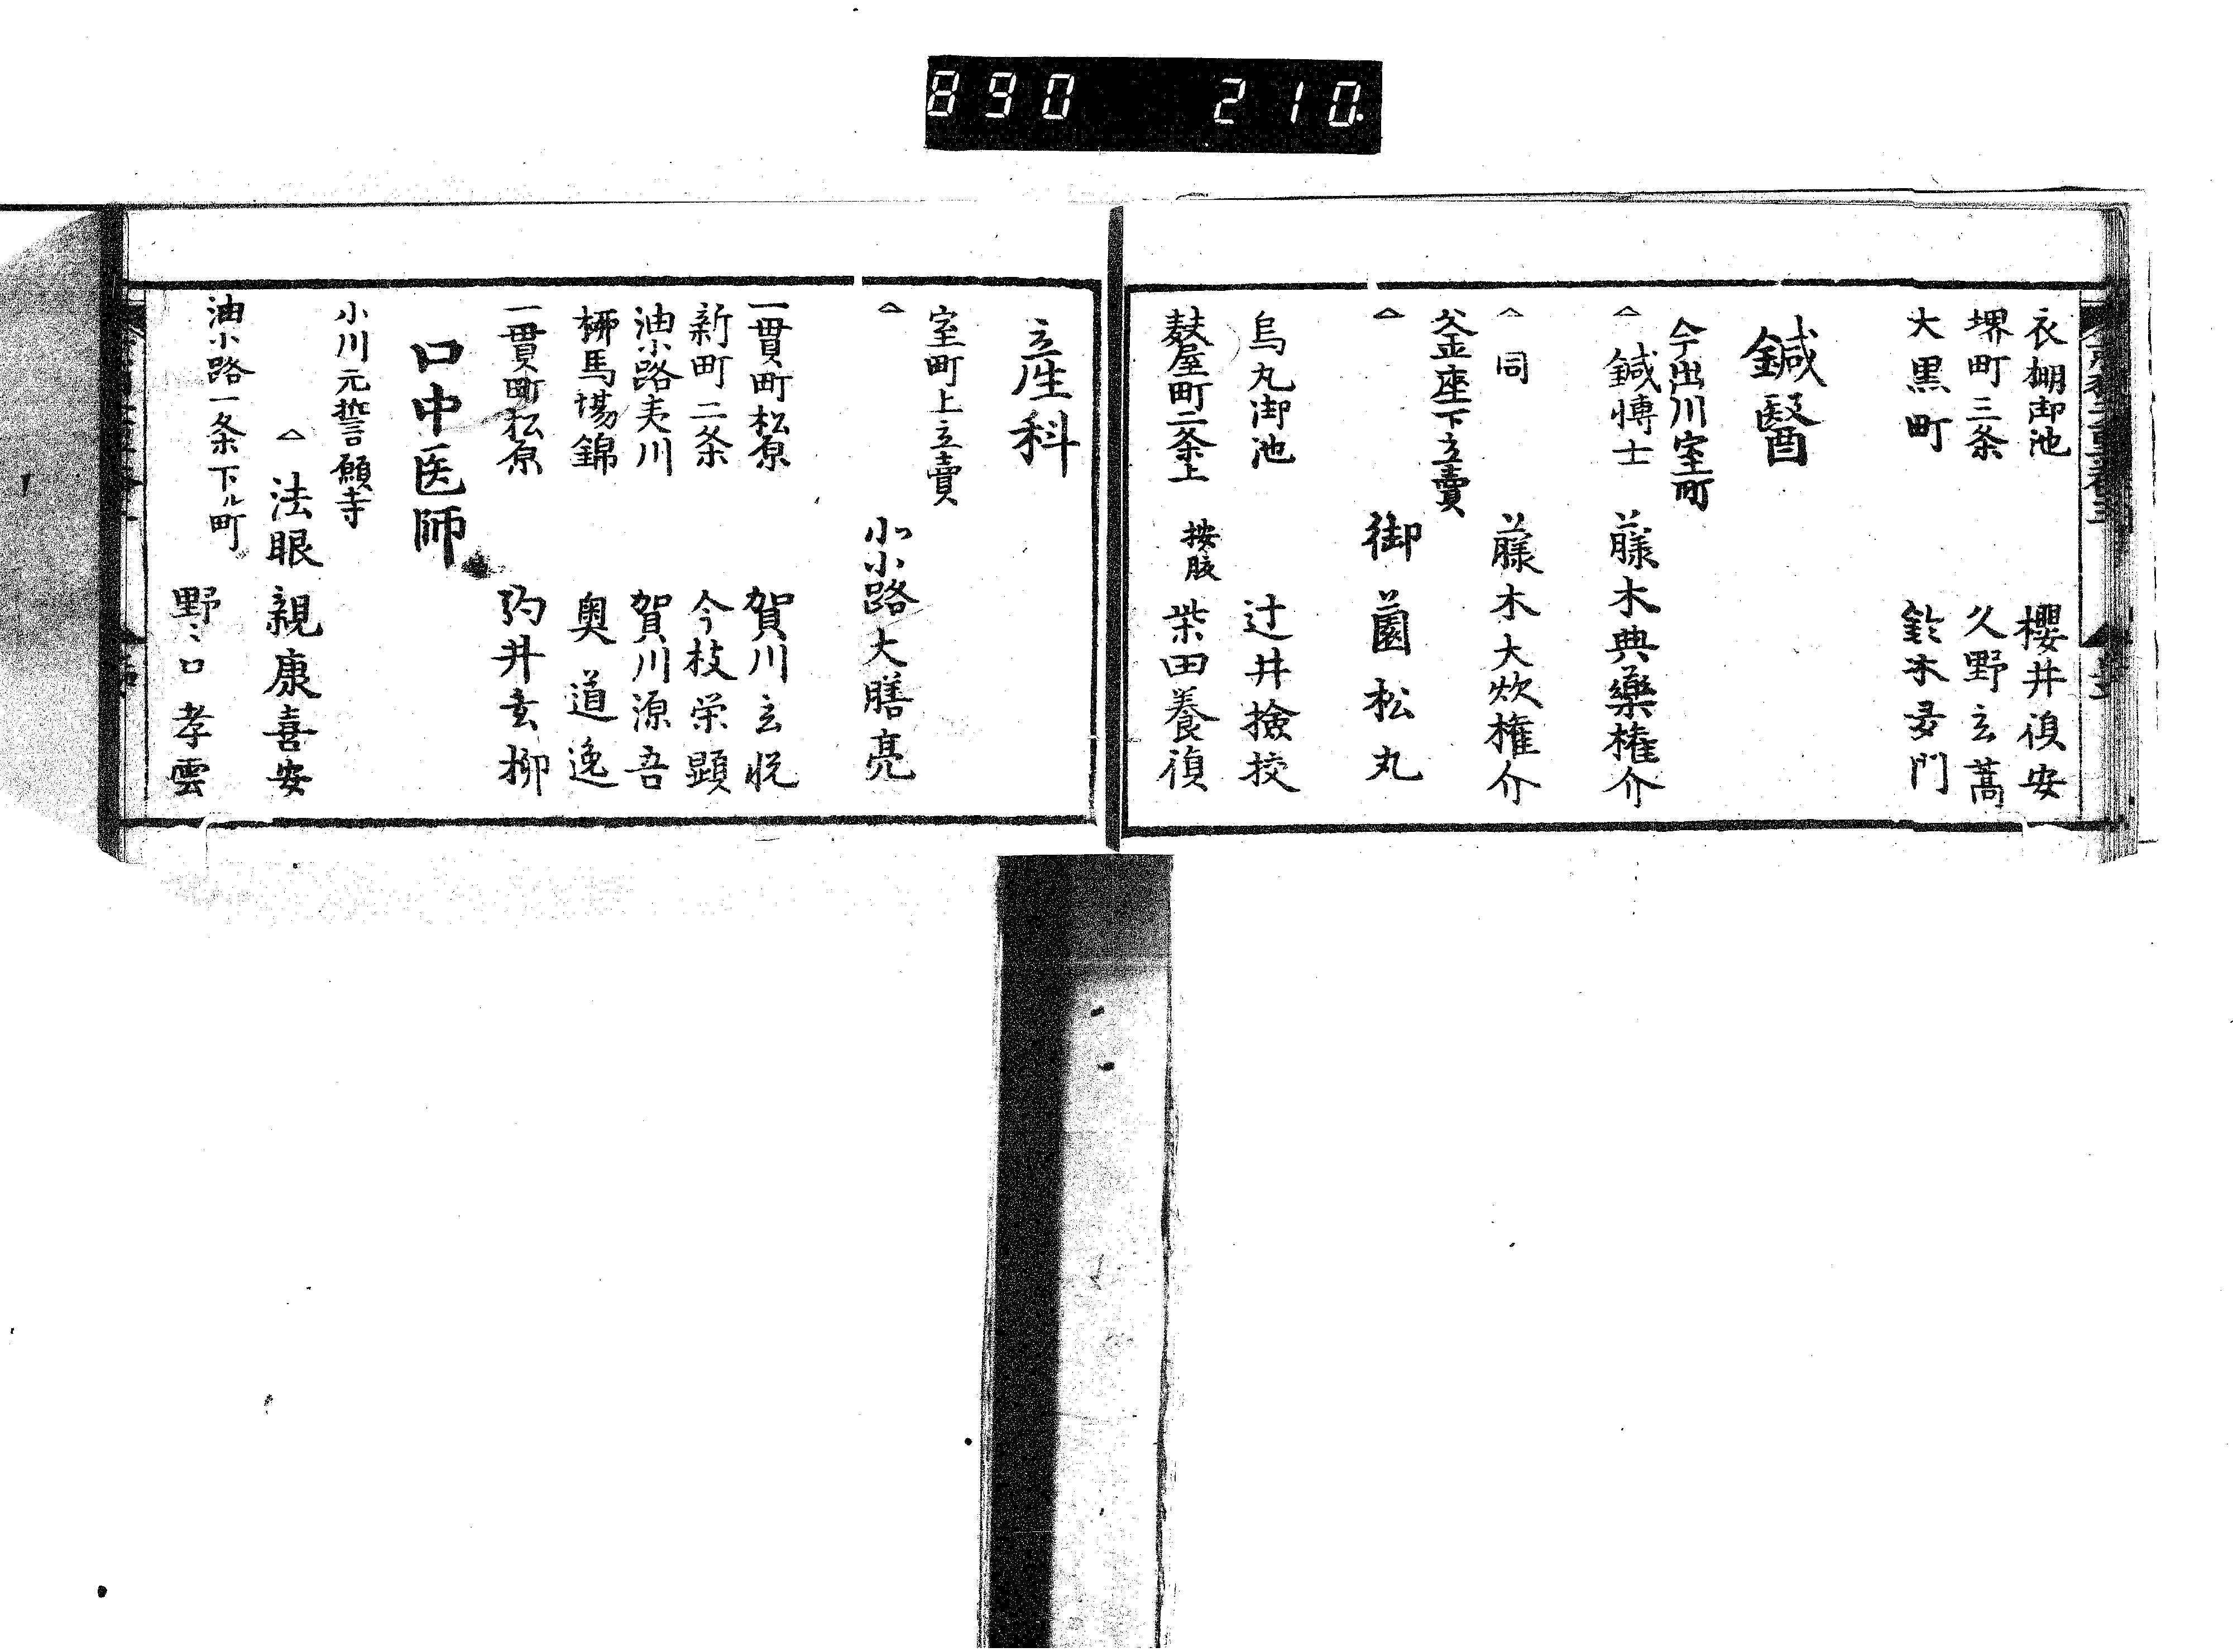 890 210.
衣棚御池 櫻井復安
堺町三条 久野玄蒿
大黒町
鍼醫
今出川室町
△鍼博士 藤木典藥権介
△同 藤木大炊権介
釜座下立賣
△ 御薗松丸
烏丸御池 辻井撿挍
麩屋町二条上 按腹 柴田養復
産科
室町上立賣
△ 小小路大膳亮
一貫町松原 賀川玄悦
新町二条 今枝栄顕
油小路夷川 賀川源吾
柳馬場錦 奥道逸
一貫町松原 井玄柳
口中医師
小川元誓願寺
△法眼親康喜安
油小路一条下ル町
野々口孝雲